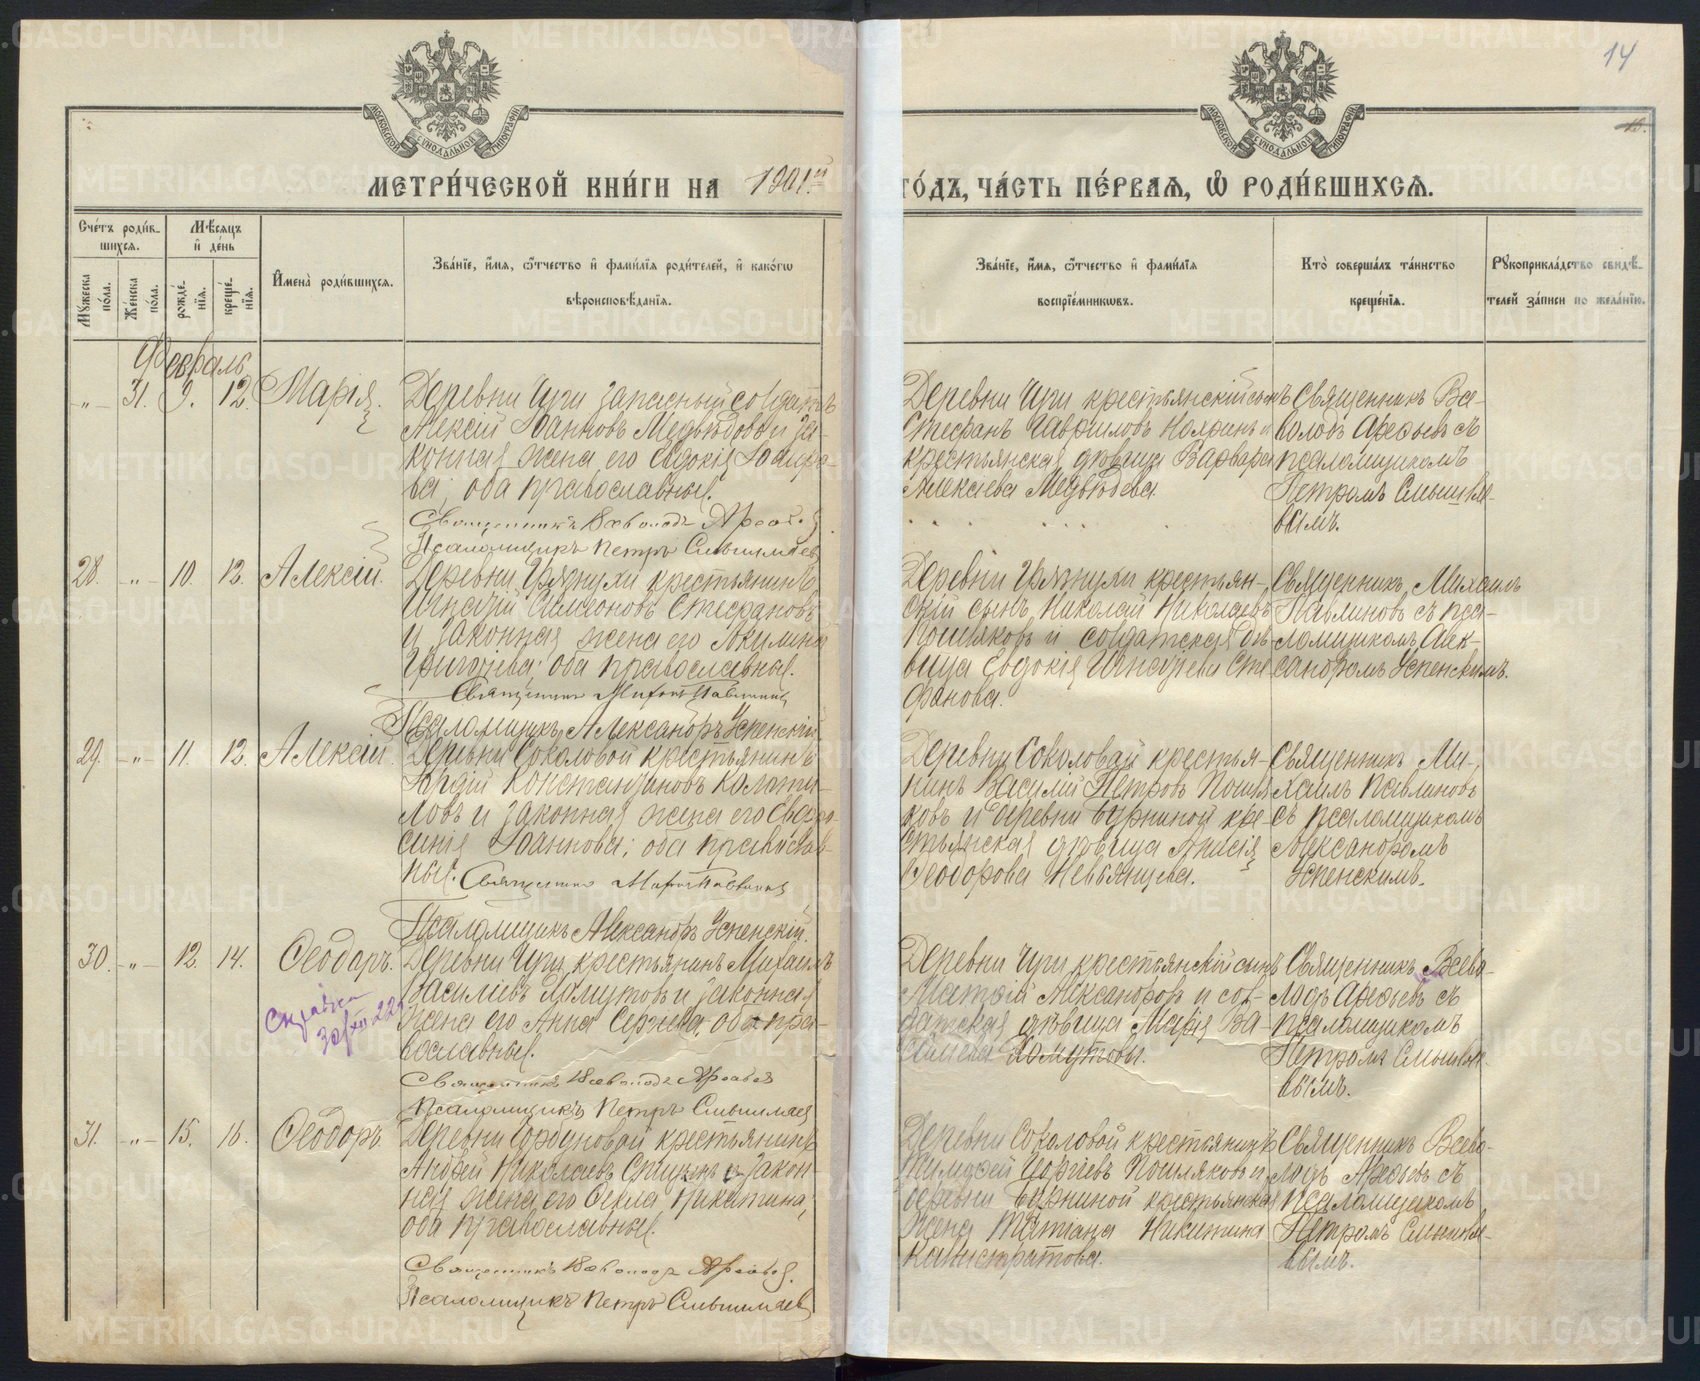 14
МЕТРИ́ЧЕСКОЙ КНИ́ГИ НА 1901й
ГО́ДЪ, ЧА́СТЬ ПЕ́РВАЯ, Ѡ҆ РОДИ́ВШИХСЯ.
Сче́тъ роди́в-
шихся.
Мѣ́сяцъ
и҆ де́нь
Мꙋ́жеска
по́ла.
Же́нска
по́ла.
рожде́-
нїя.
креще́-
нїя.
И҆мена̀ роди́вшихся.
Зва́нїе, и҆́мя, ѻ҆́тчество и҆ фами́лїя роди́телей, и҆ како́гѡ
вѣроисповѣ́данїя.
Зва́нїе, и҆́мя, ѻ҆́тчество и҆ фами́лїя
воспрїе́мникѡвъ.
Кто̀ соверша́лъ та́инство
креще́нїя.
Рꙋкоприкла́дство свидѣ́-
телей за́писи по жела́нїю.
Февраль
-"- 31. 9. 12. Марія.
Деревни Чри запасный солдатъ
Алексій Іоанновъ Медвѣдевъ и за-
конная жена его Евдокія
ва; оба православные.
Священникъ Всеволодъ Арефьев
Псаломщикъ Петръ Смышляев
Деревни Чри крестьянскій сынъ
Стефанъ Гавриловъ и
крестьянская дѣвица Варвара
Алексіева Медвѣдева.
Священникъ Все-
володъ Арефьевъ съ
псаломщикомъ
Петромъ Смышля-
вымъ.
28. -"- 10. 12. Алексій.
Деревни Грязнухи крестьянинъ
Игнатій Симеоновъ Стефановъ
и законная жена его Акилина
Григоріева; оба православные.
Священник Михаил Павлинов
Псаломщикъ Александръ Успенскій.
Деревни Грязнухи крестьян-
скій сынъ Николай Николаевъ
Пошляковъ и солдатская дѣ-
вица Евдокія Игнатіева Сте
фанова.
Священникъ Михаилъ
Павлиновъ съ пса-
ломщикомъ Алек-
сандромъ Успенскимъ.
29. -"- 11. 12. Алексій.
Деревни Соколовой крестьянинъ
Константиновъ
ловъ и законная жена его Евфро-
синія Іоаннова; оба православ-
ные. Священник Михаил Павлинов
Псаломщикъ Александръ Успенскій.
Деревни Соколовой крестья-
нинъ Василій Петровъ Пошля
ковъ и деревни Бурниной кре-
стьянская дѣвица Анисія
Ѳеодорова Невьянцева.
Священникъ Ми-
хаилъ Павлиновъ
съ псаломщикомъ
Александромъ
Успенскимъ.
30. -"- 12. 14. Ѳеодоръ.
Деревни Чри крестьянинъ Михаилъ
Василіевъ Хомутовъ и законная
жена его Анна Сергіева; оба пра-
вославные.
Священникъ Всеволодъ Арефьев
Псаломщикъ Петръ Смышляев
Деревни Чри крестьянскій сынъ
Матѳій Александровъ и сол-
датская дѣвица Марія Ва-
силіева Хомутова.
Священникъ Всево-
лодъ Арефьевъ съ
псаломщикомъ
Петромъ Смышля-
вымъ.
31. -"- 15. 16. Ѳеодоръ.
Деревни Горбуновой крестьянинъ
Андрей Николаевъ Спицынъ и закон
ная жена его Ѳекла Никитина;
оба православные.
Священникъ Всеволодъ Арефьев.
Псаломщикъ Петръ Смышляев
Деревни Соколовой крестьянинъ
Тимоѳей Георгіевъ Пошляковъ и
деревни Бурниной крестьянская
жена Татіана Никитина
Калистратова.
Священникъ Всево-
лодъ Арефьевъ съ
псаломщикомъ
Петромъ Смышля-
вымъ.